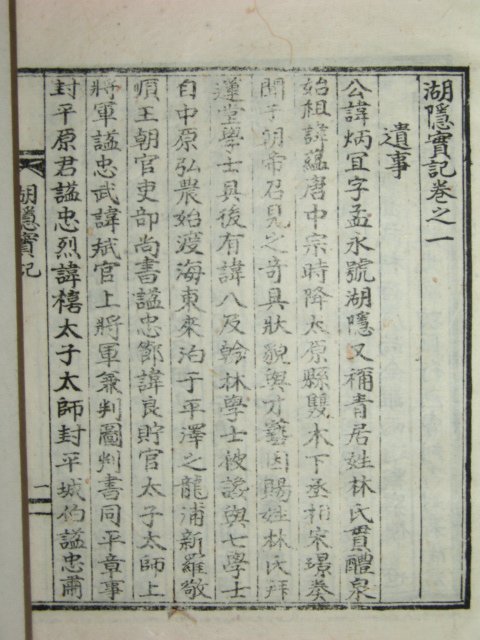 湖隱實記卷之一
遺事
公諱炳宜字孟永號湖隱又稱靑居姓林氏貫醴泉
始祖諱蘊唐中宗時降太原縣雙木下丞相宋璟奏
聞于朝帝召見之奇其狀貌與才藝因賜姓林氏拜
蓮堂學士其後有諱八及翰林學士被讒與七學士
自中原弘農始渡海東來泊于平澤之龍浦新羅敬
順王朝官吏部尙書謚忠節諱良貯官太子太師上
將軍謚忠武諱斌官上將軍兼判圖判書同平章事
封平原君謚忠烈諱禧太子太師封平城伯謚忠肅
湖隱實記
一